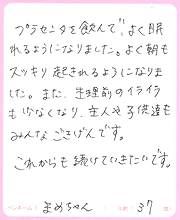 プラセンタを飲んで、よく眠
れるようになりました。よく朝も
スッキリ起きれるようになりまし
た。また、生理前のイライラ
も少なくなり、主人や子供達も
みんなごきげんです。
これからも続けていきたいです。
ペンネーム
まめちゃん
37